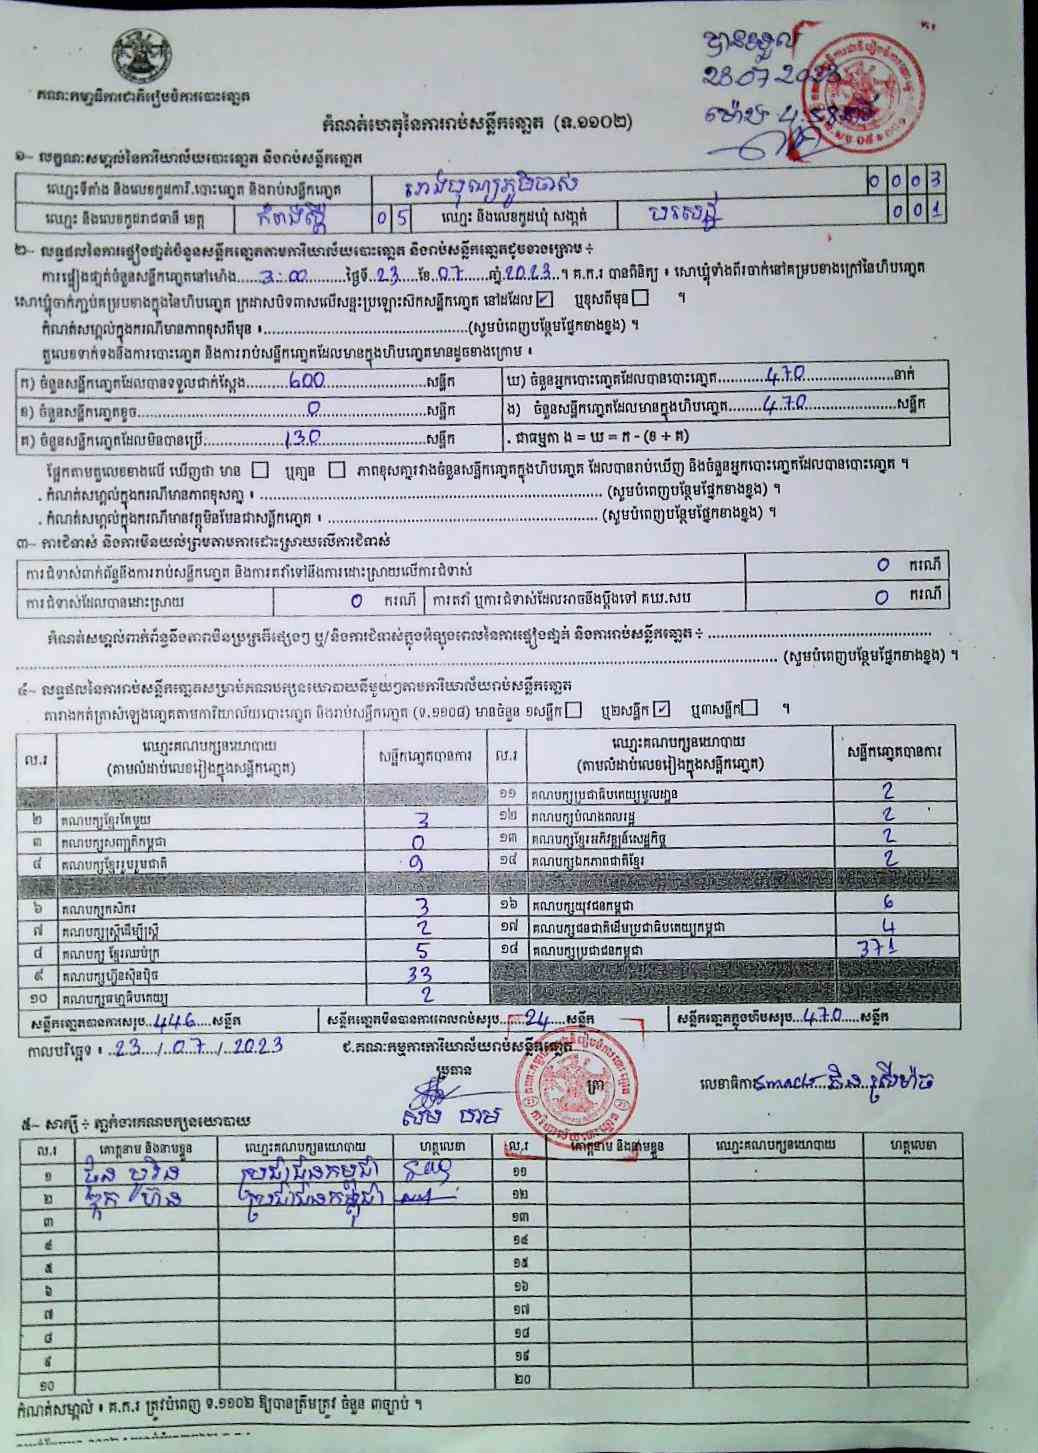 បានទទួល
23 07 2023
ម៉ោង 4:
គណៈកម្មាធិការជាតិរៀបចំការបោះឆ្នោត
កំណត់ហេតុនៃការរាប់សន្លឹកឆ្នោត (ទ.១១០២)
១- លក្ខណៈសម្គាល់នៃការិយាល័យបោះឆ្នោត និងរាប់សន្លឹកឆ្នោត
ឈ្មោះទីតាំង និងលេខកូដការិ.បោះឆ្នោត និងរាប់សន្លឹកឆ្នោត រោងបុណ្យភូមិចាស់ 0 0 0 3
ឈ្មោះ និងលេខកូដរាជធានី ខេត្ត កំពង់ស្ពឺ 0 5 ឈ្មោះ និងលេខកូដឃុំ សង្កាត់ បរសេដ្ឋ 0 0 1
២- លទ្ធផលនៃការផ្ទៀងផ្ទាត់ចំនួនសន្លឹកឆ្នោតតាមការិយាល័យបោះឆ្នោត និងរាប់សន្លឹកឆ្នោតដូចខាងក្រោម ÷
ការផ្ទៀងផ្ទាត់ចំនួនសន្លឹកឆ្នោតនៅម៉ោង 3:00 ថ្ងៃទី 23 ខែ 07 ឆ្នាំ 2023 ។ គ.ក.រ បានពិនិត្យ ៖ សោឃ្មុំទាំងពីរចាក់នៅគម្របខាងក្រៅនៃហិបឆ្នោត
សោឃ្មុំចាក់ភ្ជាប់គម្របខាងក្នុងនៃហិបឆ្នោត ក្រដាសបិទពាសលើសន្ទះប្រឡោះស៊កសន្លឹកឆ្នោត នៅដដែល ☑ ឬខុសពីមុន ☐ ។
កំណត់សម្គាល់ក្នុងករណីមានភាពខុសពីមុន ៖ (សូមបំពេញបន្ថែមផ្នែកខាងខ្នង) ។
តួលេខទាក់ទងនឹងការបោះឆ្នោត និងការរាប់សន្លឹកឆ្នោតដែលមានក្នុងហិបឆ្នោតមានដូចខាងក្រោម ៖
ក) ចំនួនសន្លឹកឆ្នោតដែលបានទទួលជាក់ស្តែង 600 សន្លឹក ឃ) ចំនួនអ្នកបោះឆ្នោតដែលបានបោះឆ្នោត 470 នាក់
ខ) ចំនួនសន្លឹកឆ្នោតខូច 0 សន្លឹក ង) ចំនួនសន្លឹកឆ្នោតដែលមានក្នុងហិបឆ្នោត 470 សន្លឹក
គ) ចំនួនសន្លឹកឆ្នោតដែលមិនបានប្រើ 130 សន្លឹក . ជាធម្មតា ង = ឃ = ក - (ខ + គ)
ផ្អែកតាមតួលេខខាងលើ ឃើញថា មាន ☐ ឬគ្មាន ☐ ភាពខុសគ្នារវាងចំនួនសន្លឹកឆ្នោតក្នុងហិបឆ្នោត ដែលបានរាប់ឃើញ និងចំនួនអ្នកបោះឆ្នោតដែលបានបោះឆ្នោត ។
. កំណត់សម្គាល់ក្នុងករណីមានភាពខុសគ្នា ៖ (សូមបំពេញបន្ថែមផ្នែកខាងខ្នង) ។
. កំណត់សម្គាល់ក្នុងករណីមានវត្ថុមិនមែនជាសន្លឹកឆ្នោត ៖ (សូមបំពេញបន្ថែមផ្នែកខាងខ្នង) ។
៣- ការជំទាស់ និងការមិនយល់ព្រមតាមការដោះស្រាយលើការជំទាស់
ការជំទាស់ពាក់ព័ន្ធនឹងការរាប់សន្លឹកឆ្នោត និងការតវ៉ាទៅនឹងការដោះស្រាយលើការជំទាស់ 0 ករណី
ការជំទាស់ដែលបានដោះស្រាយ 0 ករណី ការតវ៉ា ឬការជំទាស់ដែលអាចនឹងប្តឹងទៅ គឃ.សប 0 ករណី
កំណត់សម្គាល់ពាក់ព័ន្ធនឹងភាពមិនប្រក្រតីផ្សេងៗ ឬ/និងការជំទាស់ក្នុងអំឡុងពេលនៃការផ្ទៀងផ្ទាត់ និងការរាប់សន្លឹកឆ្នោត ÷
(សូមបំពេញបន្ថែមផ្នែកខាងខ្នង) ។
៤- លទ្ធផលនៃការរាប់សន្លឹកឆ្នោតសម្រាប់គណបក្សនយោបាយនីមួយៗតាមការិយាល័យរាប់សន្លឹកឆ្នោត
តារាងកត់ត្រាសំឡេងឆ្នោតតាមការិយាល័យបោះឆ្នោត និងរាប់សន្លឹកឆ្នោត (ទ.១១០៨) មានចំនួន ១សន្លឹក ☐ ឬ២សន្លឹក ☑ ឬ៣សន្លឹក ☐ ។
ល.រ ឈ្មោះគណបក្សនយោបាយ (តាមលំដាប់លេខរៀងក្នុងសន្លឹកឆ្នោត) សន្លឹកឆ្នោតបានការ ល.រ ឈ្មោះគណបក្សនយោបាយ (តាមលំដាប់លេខរៀងក្នុងសន្លឹកឆ្នោត) សន្លឹកឆ្នោតបានការ
១១ គណបក្សប្រជាធិបតេយ្យមូលដ្ឋាន 2
២ គណបក្សខ្មែរតែមួយ 3 ១២ គណបក្សបំណងពលរដ្ឋ 2
៣ គណបក្សសញ្ជាតិកម្ពុជា 0 ១៣ គណបក្សខ្មែរអភិវឌ្ឍន៍សេដ្ឋកិច្ច 2
៤ គណបក្សខ្មែររួបរួមជាតិ 9 ១៤ គណបក្សឯកភាពជាតិខ្មែរ 2
៦ គណបក្សកសិករ 3 ១៦ គណបក្សយុវជនកម្ពុជា 6
៧ គណបក្សស្ត្រីដើម្បីស្ត្រី 2 ១៧ គណបក្សជនជាតិដើមប្រជាធិបតេយ្យកម្ពុជា 4
៨ គណបក្ស ខ្មែរឈប់ក្រ 5 ១៨ គណបក្សប្រជាជនកម្ពុជា 371
៩ គណបក្សហ្វ៊ុនស៊ិនប៉ិច 33
១០ គណបក្សធម្មាធិបតេយ្យ 2
សន្លឹកឆ្នោតបានការសរុប 446 សន្លឹក សន្លឹកឆ្នោតមិនបានការពេលរាប់សរុប 24 សន្លឹក សន្លឹកឆ្នោតក្នុងហិបសរុប 470 សន្លឹក
កាលបរិច្ឆេទ ៖ 23/07/2023 ជ.គណៈកម្មការការិយាល័យរាប់សន្លឹកឆ្នោត
ប្រធាន ត្រា លេខាធិការ
៥- សាក្សី ÷ ភ្នាក់ងារគណបក្សនយោបាយ
ល.រ គោត្តនាម និងនាមខ្លួន ឈ្មោះគណបក្សនយោបាយ ហត្ថលេខា ល.រ គោត្តនាម និងនាមខ្លួន ឈ្មោះគណបក្សនយោបាយ ហត្ថលេខា
១ ប្រជាជនកម្ពុជា ១១
២ ប្រជាជនកម្ពុជា ១២
៣ ១៣
៤ ១៤
៥ ១៥
៦ ១៦
៧ ១៧
៨ ១៨
៩ ១៩
១០ ២០
កំណត់សម្គាល់ ៖ គ.ក.រ ត្រូវបំពេញ ទ.១១០២ ឱ្យបានត្រឹមត្រូវ ចំនួន ៣ច្បាប់ ។